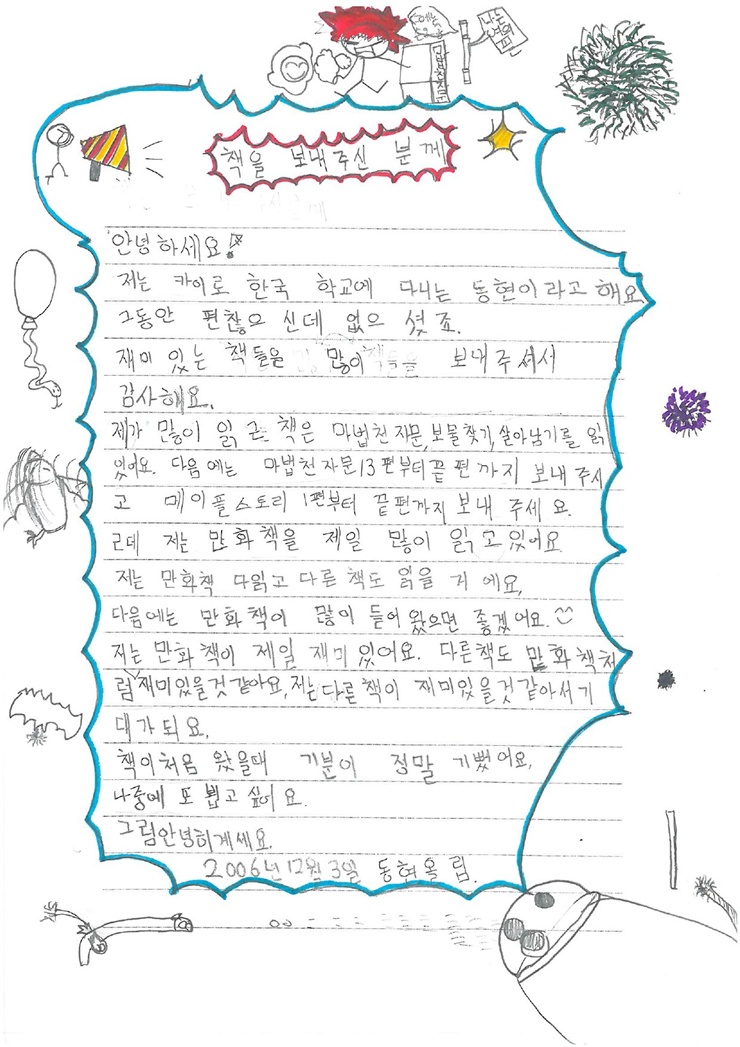 나는
마법천자문
책을 보내주신 분께
안녕하세요!
저는 카이로 한국 학교에 다니는 동현이라고 해요
그동안 편찮으 신데 없으 셨죠.
재미 있는 책들을 많이 보내주셔서
감사해요.
제가 많이 읽은 책은 마법천자문, 보물찾기, 살아남기를 읽
었어요. 다음에는 마법천자문 13편부터 끝편까지 보내주시
고 메이플스토리 1편부터 끝편까지 보내 주세요.
근데 저는 만화책을 제일 많이 읽고있어요.
저는 만화책 다읽고 다른 책도 읽을 거 에요,
다음에는 만화책이 많이 들어 왔으면 좋겠어요.
저는 만화책이 제일 재미 있어요. 다른책도 만화책처
럼 재미있을것 같아요, 저는 다른 책이 재미있을것 같아서 기
대가 되요.
책이 처음 왔을때 기분이 정말 기뻤어요,
나중에 또 뵙고 싶어요.
그럼안녕히계세요.
2006년 12월 3일 동현올림.